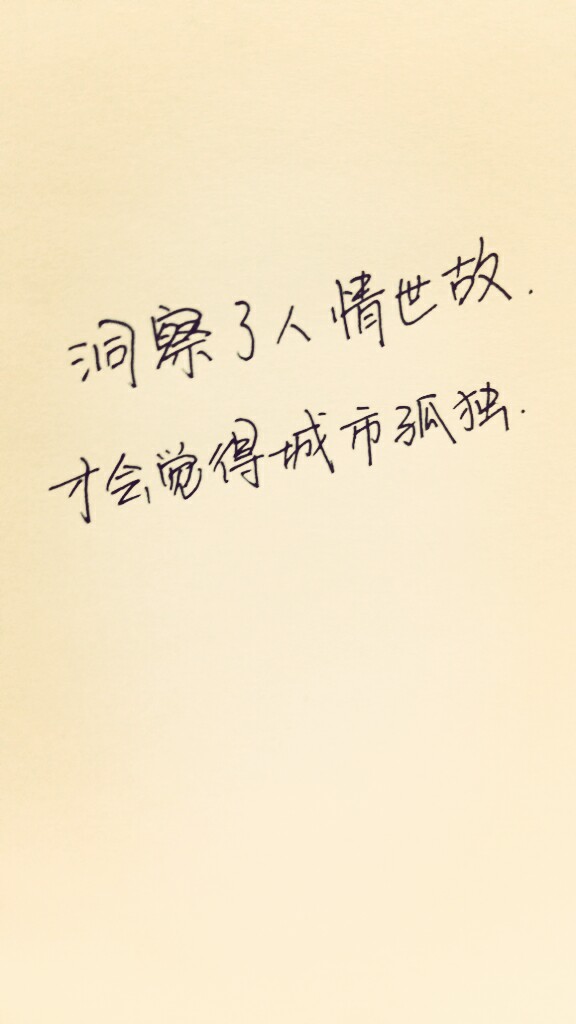 洞察了人情世故.
才会觉得城市孤独.